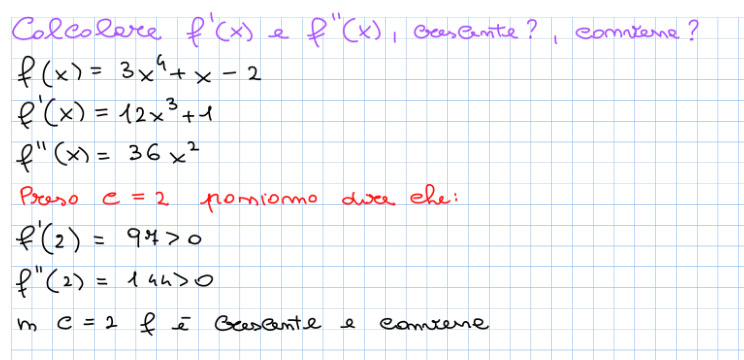 Calcolare f'(x) e f''(x), crescente?, convessa?
f(x) = 3x⁴ + x - 2
f'(x) = 12x³ + 1
f''(x) = 36x²
Preso c = 2 possiamo dire che:
f'(2) = 97 > 0
f''(2) = 144 > 0
in c = 2 f è crescente e convessa